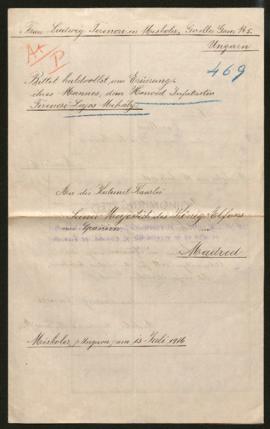 Frau Ludwig Ferenczi in Miskolcz, Gam № 5.
Ungarn
A+
P
469
Bittet huldvollst, um Eruirung
ihres Mannes, dem Honvéd Infanteristen
Ferenczi Lajos Mihály
An die Kabinet Kanzlei
Seiner Majestät des König
von Spanien.
Madrid
Miskolcz, Ungarn, am 15 Juli 1916